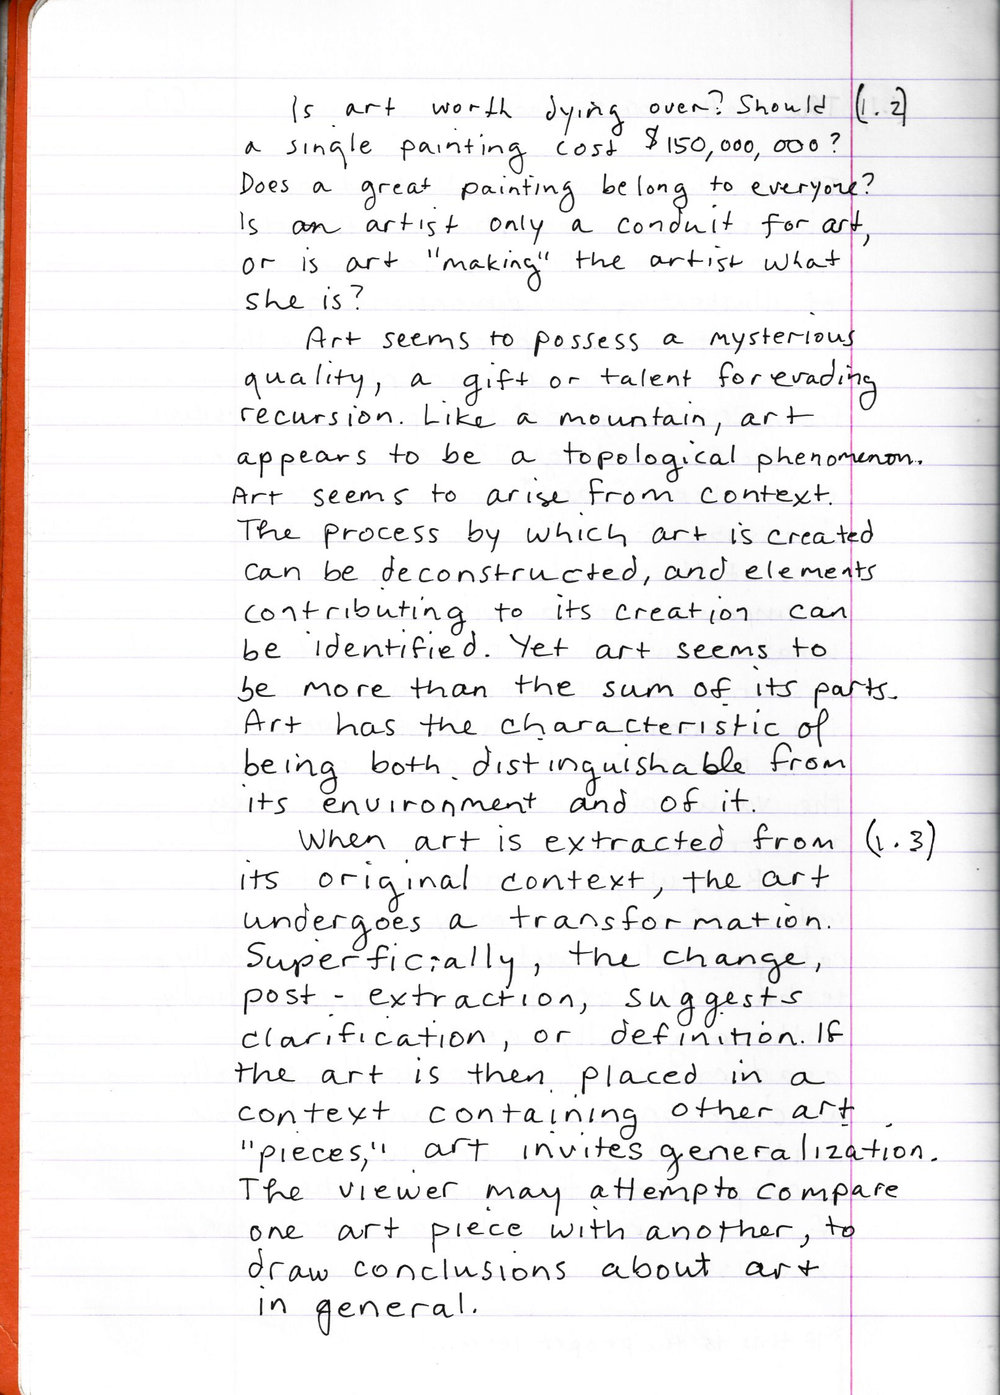 Is art worth dying over? Should (1.2)
a single painting cost $150,000,000?
Does a great painting belong to everyone?
Is an artist only a conduit for art,
or is art "making" the artist what
she is?
Art seems to possess a mysterious
quality, a gift or talent for evading
recursion. Like a mountain, art
appears to be a topological phenomenon.
Art seems to arise from context.
The process by which art is created
can be deconstructed, and elements
contributing to its creation can
be identified. Yet art seems to
be more than the sum of its parts.
Art has the characteristic of
being both distinguishable from
its environment and of it.
When art is extracted from (1.3)
its original context, the art
undergoes a transformation.
Superficially, the change,
post-extraction, suggests
clarification, or definition. If
the art is then placed in a
context containing other art
"pieces," art invites generalization.
The viewer may attempt to compare
one art piece with another, to
draw conclusions about art
in general.